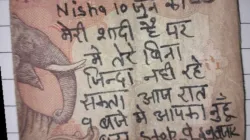 Nisha 10 जुन को
मेरी शादी है पर
मे तेरे बिना
जिन्दा नही रहे
सकता आप रात
9 बाजे मे आपका